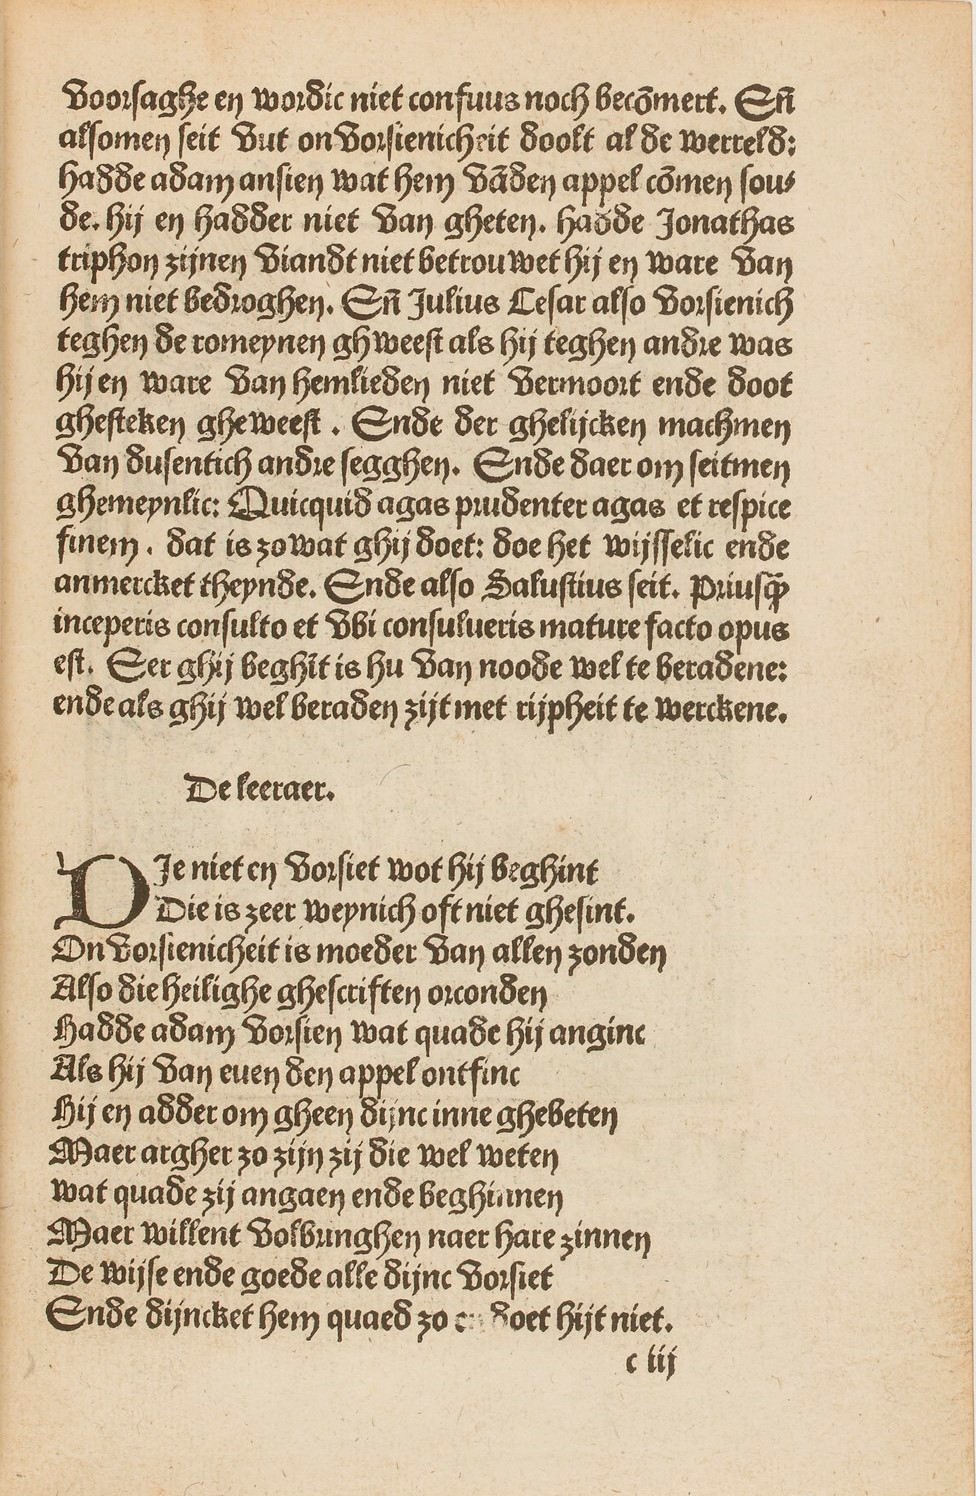 voorsaghe en wordic niet confuus noch becōmert. Eñ
alsomen seit vut onvorsienicheit doolt al de werreld:
hadde adam ansien wat hem vāden appel cōmen sou⸗
de. hij en hadder niet van gheten. hadde Jonathas
triphon zijnen viandt niet betrouwet hij en ware van
hem niet bedroghen. Eñ Julius Cesar also vorsienich
teghen de romeynen ghweest als hij teghen andre was
hij en ware van hemlieden niet vermoort ende doot
ghesteken gheweest. Ende der ghelijcken machmen
van dusentich andre segghen. Ende daer om seitmen
ghemeynlic: Quicquid agas prudenter agas et respice
finem. dat is zo wat ghij doet: doe het wijsselic ende
anmercket theynde. Ende also Salustius seit. Priusq̄
inceperis consulto et vbi consulueris mature facto opus
est. Eer ghij beghīt is hu van noode wel te beradene:
ende als ghij wel beraden zijt met rijpheit te werckene.
De leeraer.
DJe niet en vorsiet wot hij beghint
Die is zeer weynich oft niet ghesint.
Onvorsienicheit is moeder van allen zonden
Also die heilighe ghescriften orconden
Hadde adam vorsien wat quade hij anginc
Als hij van euen den appel ontfinc
Hij en adder om gheen dijnc inne ghebeten
Maer argher zo zijn zij die wel weten
wat quade zij angaen ende beghinnen
Maer willent volbringhen naer hare zinnen
De wijse ende goede alle dijnc vorsiet
Ende dijncket hem quaed zo doet hijt niet.
c iij